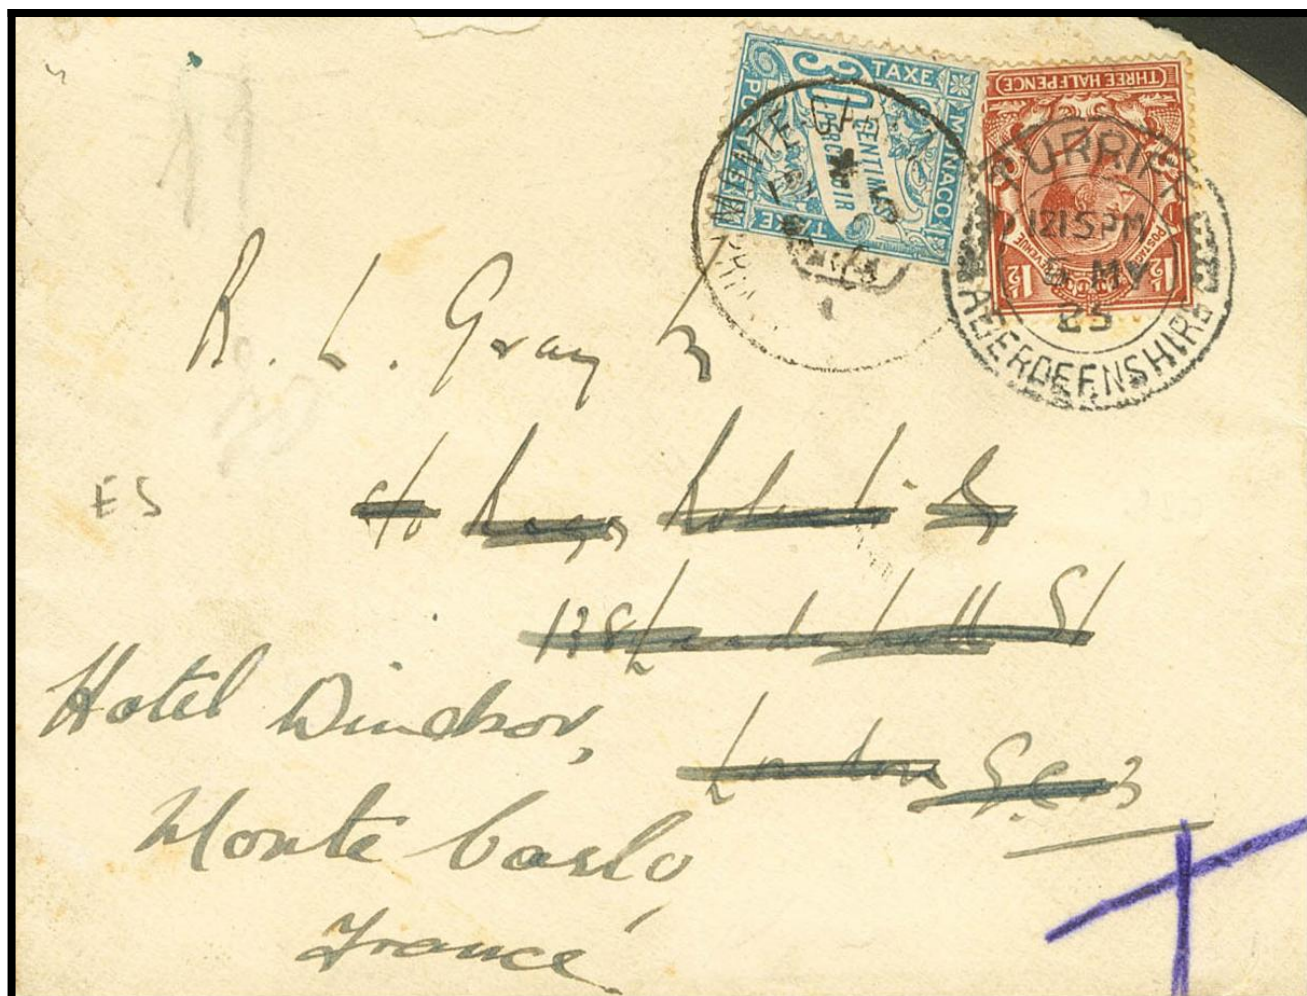 TAXE
MONACO
30
CENTIMES
A PERCEVOIR
POSTES
TAXE
THREE HALFPENCE
POSTAGE
REVENUE
1½ 1½
MONTE-CARLO
TURRIFF
1215PM
6 MY
25
ABERDEENSHIRE
R. L. Gray
ES
c/o
138 Leadenhall St
London E.C. 3
Hotel Windsor,
Monte Carlo
France
T